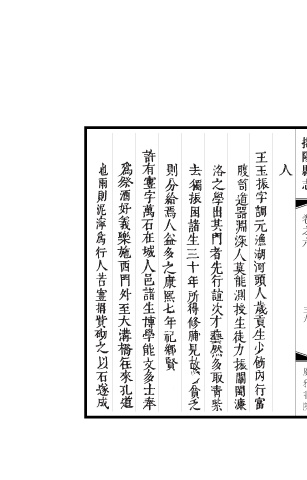 揭陽縣志
卷之六
入
王玉振字調元漁湖河頭人歲貢生少飭內行富
腹笥道器淵深人莫能測授生徒力振關閩濂
洛之學出其門者先行誼次才藝然多取青紫
去獨振困諸生三十年所得修脯見故貧乏
則分給焉人益多之康熙七年祀鄉賢
許有寰字萬石在城人邑諸生博學能文多士奉
為祭酒好義樂施西門外至大溝橋往來孔道
也雨則泥濘為行人苦寰捐貲砌之以石遂成